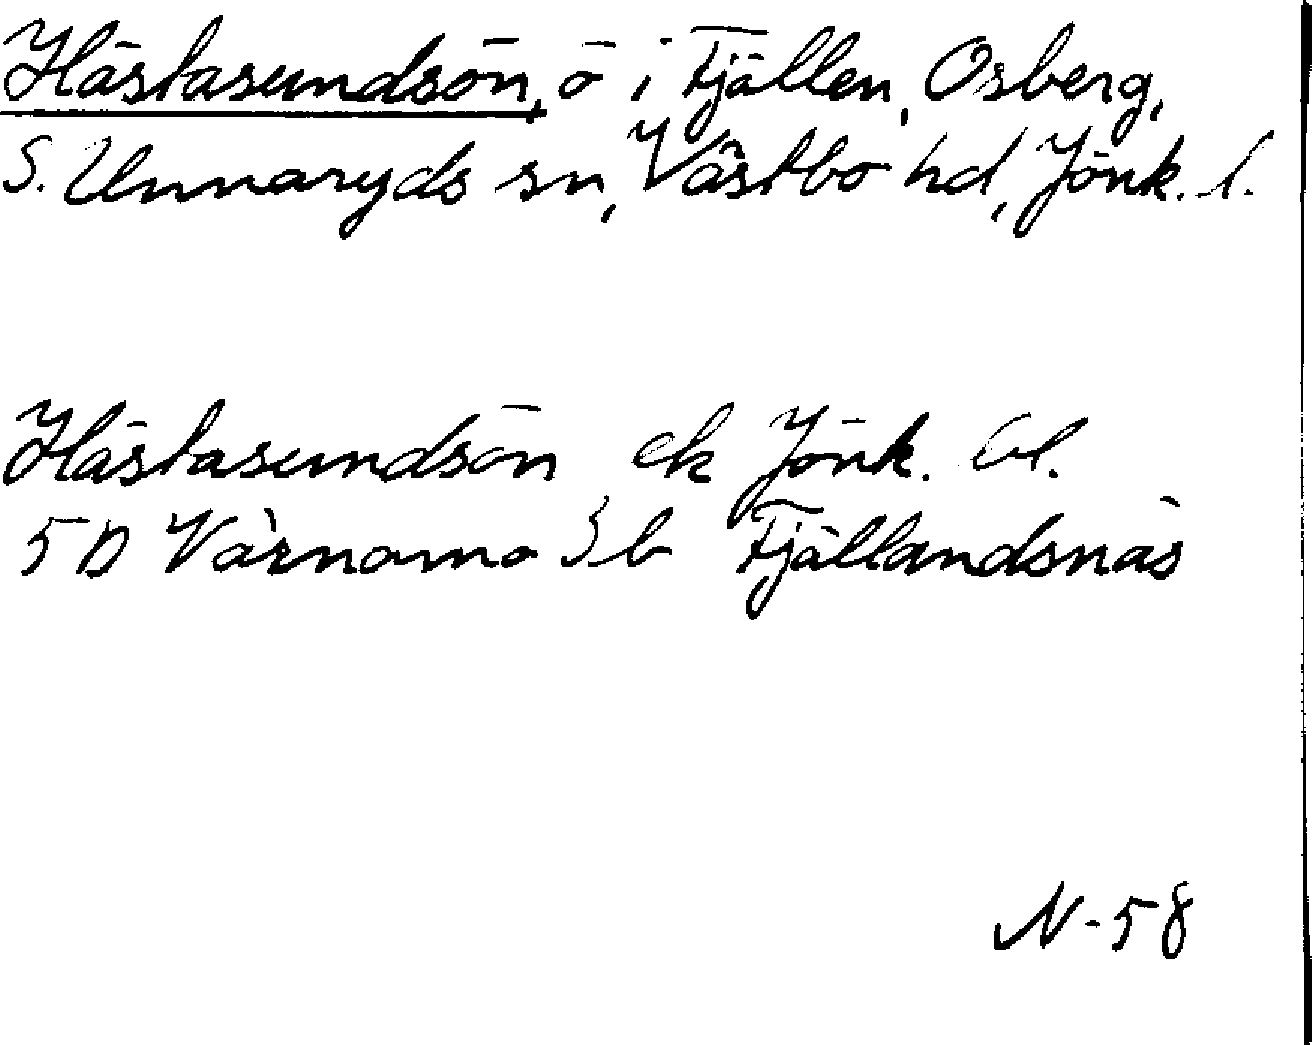 Hästasundsön, ö i Fjällen, Osberg,
S. Unnaryds sn, Västbo hd, Jönk. l.
Hästasundsön ek Jönk. bl.
5D Värnamo 3b Fjällandsnäs
N-58